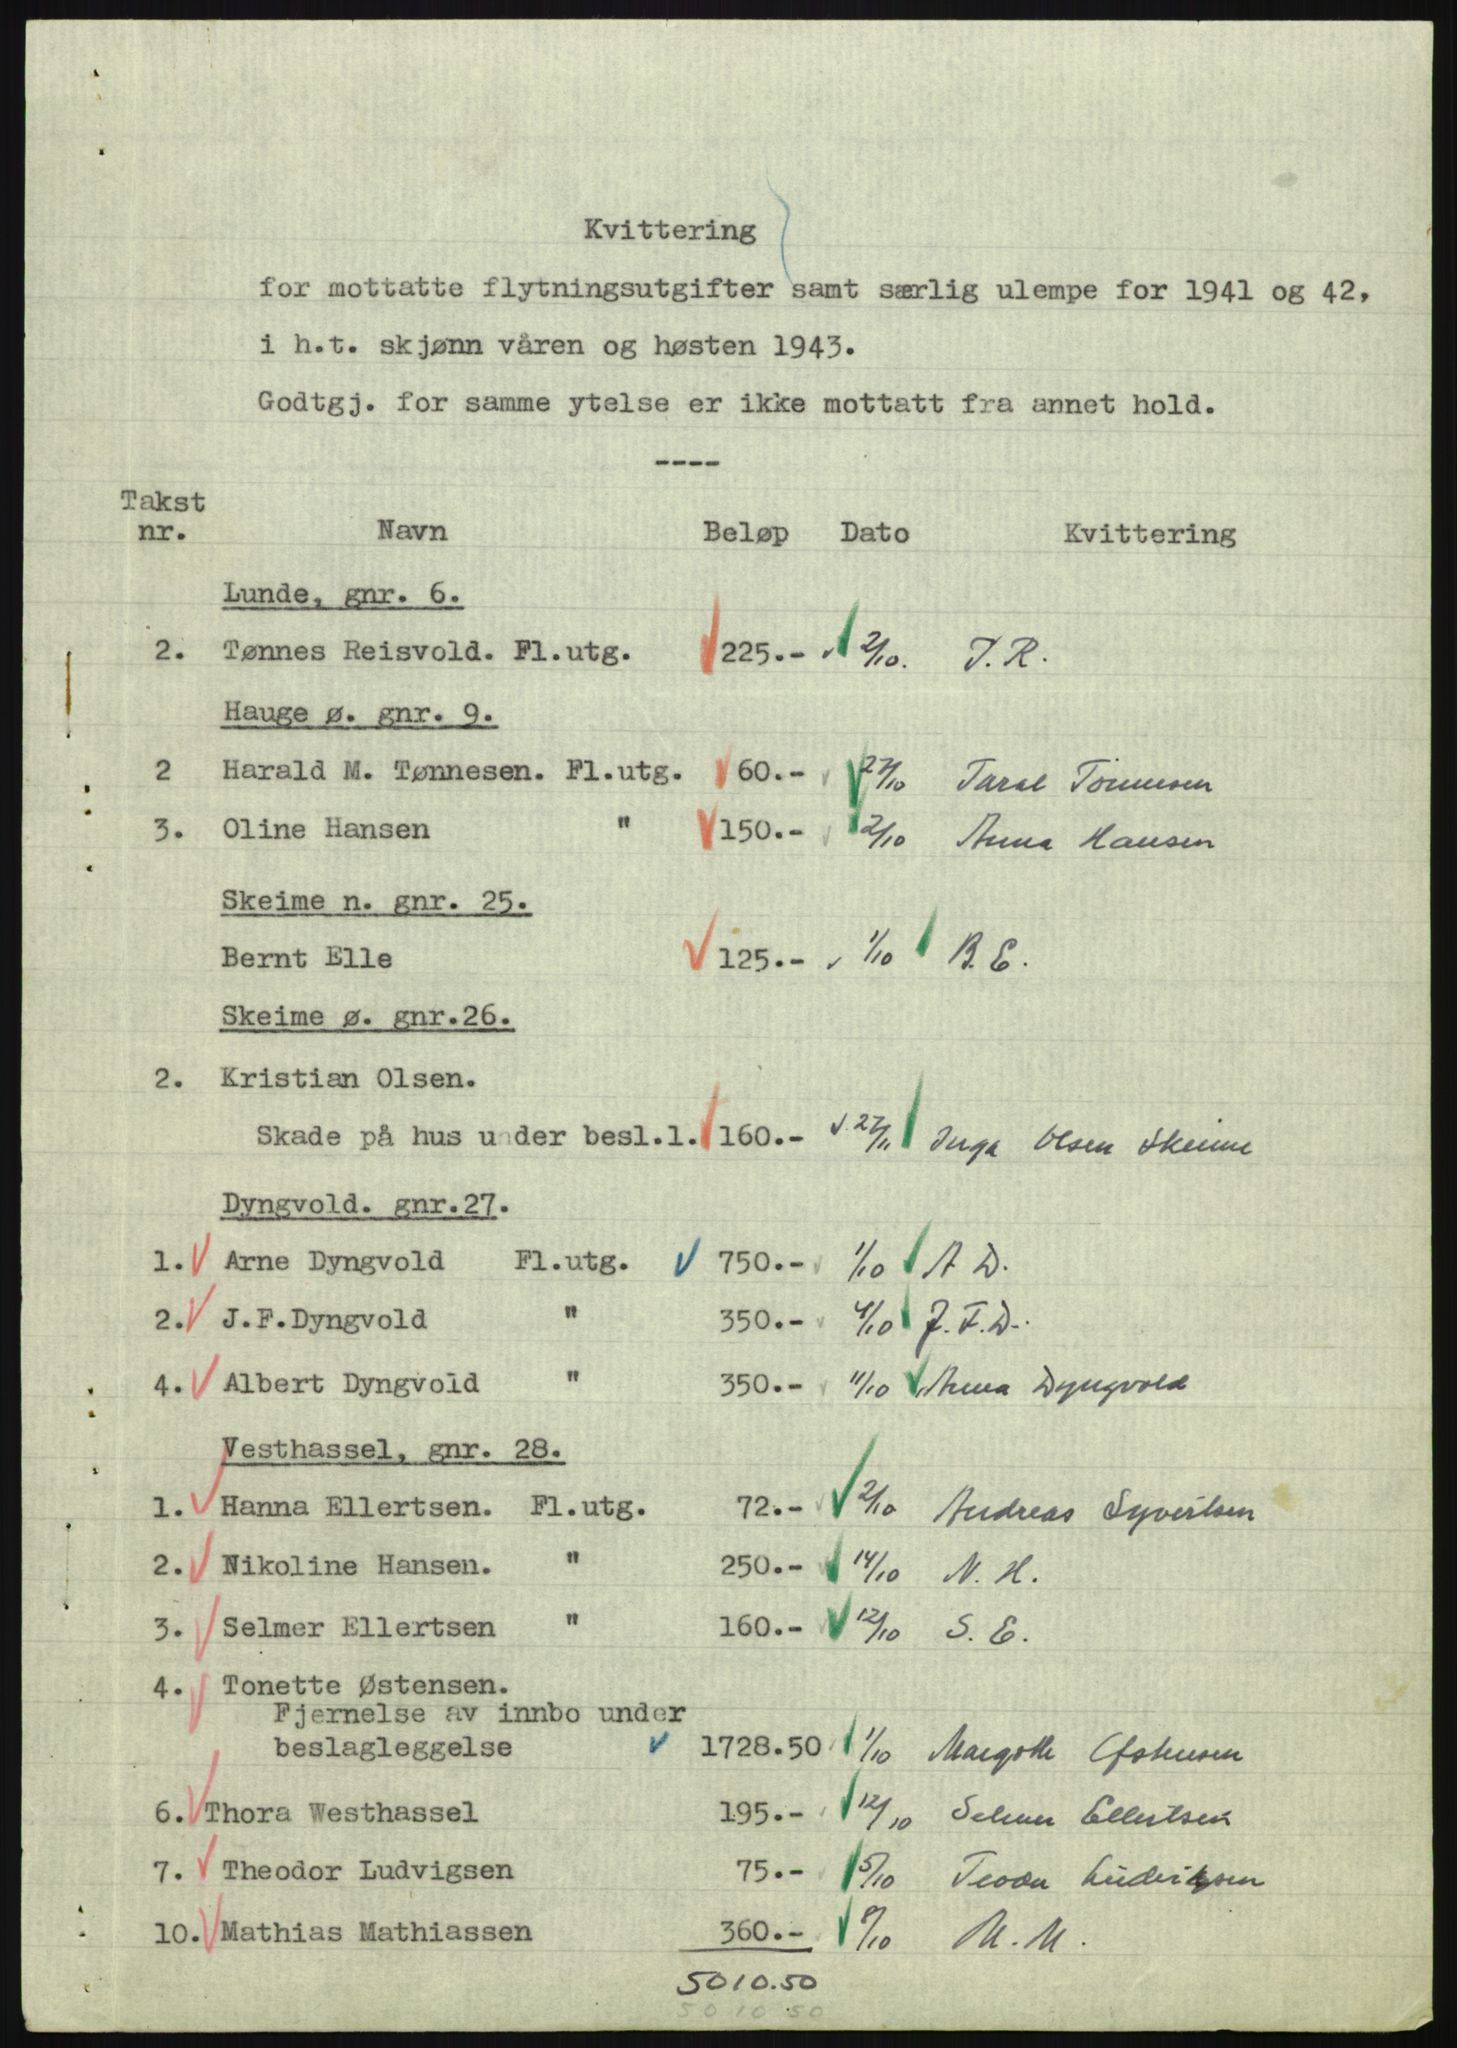 Kvittering
for mottatte flytningsutgifter samt særlig ulempe for 1941 og 42,
i h.t. skjønn våren og høsten 1943.
Godtgj. for samme ytelse er ikke mottatt fra annet hold.
----
Takst
nr. Navn Beløp Dato Kvittering
Lunde, gnr. 6.
2. Tønnes Reisvold. Fl.utg. 225.- 2/10. T. R.
Hauge ø. gnr. 9.
2 Harald M. Tønnesen. Fl.utg. 60.- 27/10 Taral Tönnesen
3. Oline Hansen " 150.- 2/10 Anna Hansen
Skeime n. gnr. 25.
Bernt Elle 125.- 1/10 B. E.
Skeime ø. gnr.26.
2. Kristian Olsen.
Skade på hus under besl.l. 160.- 27/11 Inga Olsen Skeime
Dyngvold. gnr.27.
1. Arne Dyngvold Fl.utg. 750.- 1/10 A D.
2. J.F.Dyngvold " 350.- 4/10 J. F. D.
4. Albert Dyngvold " 350.- 11/10 Anna Dyngvold
Vesthassel, gnr. 28.
1. Hanna Ellertsen. Fl.utg. 72.- 2/10 Andreas Syvertsen
2. Nikoline Hansen. " 250.- 14/10 N. H.
3. Selmer Ellertsen " 160.- 12/10 S. E.
4. Tonette Østensen.
Fjernelse av innbo under
beslagleggelse 1728.50 1/10 Margoth Østensen
6. Thora Westhassel 195.- 12/10 Selmer Ellertsen
7. Theodor Ludvigsen 75.- 5/10 Teodor Ludvigsen
10. Mathias Mathiassen 360.- 8/10 M. M.
5010.50
5010 50